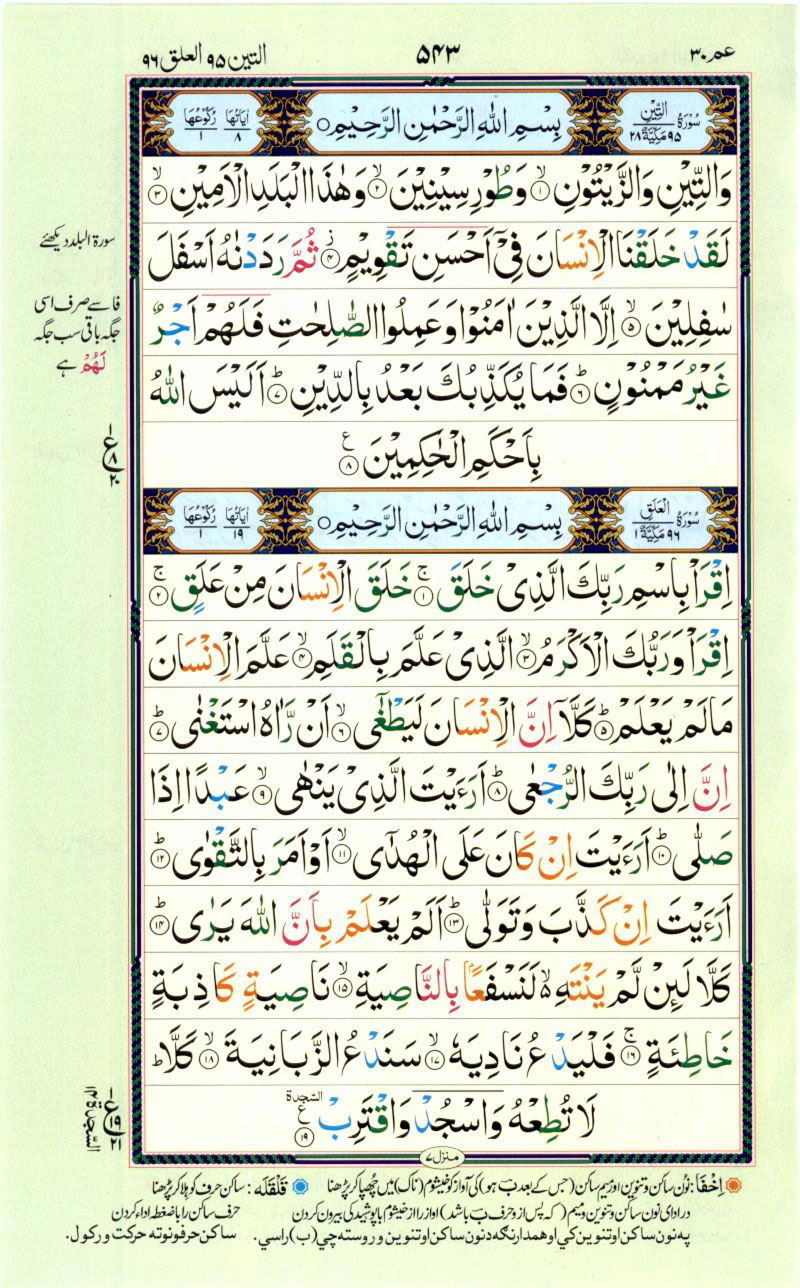 عم ٣٠
٥٤٣
التين ٩٥ العلق ٩٦
سُوْرَةُ التِّيْنِ ٩٥ مَكِّيَّةٌ ٢٨
بِسْمِ اللهِ الرَّحْمٰنِ الرَّحِيْمِ
اٰيَاتُهَا ٨
رُكُوْعُهَا ١
وَالتِّيْنِ وَالزَّيْتُوْنِ ۙ﴿١﴾ وَطُوْرِ سِيْنِيْنَ ۙ﴿٢﴾ وَهٰذَا الْبَلَدِ الْاَمِيْنِ ۙ﴿٣﴾
لَقَدْ خَلَقْنَا الْاِنْسَانَ فِيْۤ اَحْسَنِ تَقْوِيْمٍ ۫﴿٤﴾ ثُمَّ رَدَدْنٰهُ اَسْفَلَ
سٰفِلِيْنَ ۙ﴿٥﴾ اِلَّا الَّذِيْنَ اٰمَنُوْا وَعَمِلُوا الصّٰلِحٰتِ فَلَهُمْ اَجْرٌ
غَيْرُ مَمْنُوْنٍ ؕ﴿٦﴾ فَمَا يُكَذِّبُكَ بَعْدُ بِالدِّيْنِ ؕ﴿٧﴾ اَلَيْسَ اللهُ
بِاَحْكَمِ الْحٰكِمِيْنَ ﴿٨﴾ ع
سورة البلد دیکھئے
فا سے صرف اسی
جگہ باقی سب جگہ
لَهُمْ ہے
ع ٨ ٢٠
سُوْرَةُ الْعَلَقِ ٩٦ مَكِّيَّةٌ ١
بِسْمِ اللهِ الرَّحْمٰنِ الرَّحِيْمِ
اٰيَاتُهَا ١٩
رُكُوْعُهَا ١
اِقْرَاْ بِاسْمِ رَبِّكَ الَّذِيْ خَلَقَ ۚ﴿١﴾ خَلَقَ الْاِنْسَانَ مِنْ عَلَقٍ ۚ﴿٢﴾
اِقْرَاْ وَرَبُّكَ الْاَكْرَمُ ۙ﴿٣﴾ الَّذِيْ عَلَّمَ بِالْقَلَمِ ۙ﴿٤﴾ عَلَّمَ الْاِنْسَانَ
مَا لَمْ يَعْلَمْ ؕ﴿٥﴾ كَلَّاۤ اِنَّ الْاِنْسَانَ لَيَطْغٰۤى ۙ﴿٦﴾ اَنْ رَّاٰهُ اسْتَغْنٰى ؕ﴿٧﴾
اِنَّ اِلٰى رَبِّكَ الرُّجْعٰى ؕ﴿٨﴾ اَرَءَيْتَ الَّذِيْ يَنْهٰى ۙ﴿٩﴾ عَبْدًا اِذَا
صَلّٰى ؕ﴿١٠﴾ اَرَءَيْتَ اِنْ كَانَ عَلَى الْهُدٰۤى ۙ﴿١١﴾ اَوْ اَمَرَ بِالتَّقْوٰى ؕ﴿١٢﴾
اَرَءَيْتَ اِنْ كَذَّبَ وَتَوَلّٰى ؕ﴿١٣﴾ اَلَمْ يَعْلَمْ بِاَنَّ اللهَ يَرٰى ؕ﴿١٤﴾
كَلَّا لَئِنْ لَّمْ يَنْتَهِ ۙ۬ لَنَسْفَعًا بِالنَّاصِيَةِ ۙ﴿١٥﴾ نَاصِيَةٍ كَاذِبَةٍ
خَاطِئَةٍ ۚ﴿١٦﴾ فَلْيَدْعُ نَادِيَهٗ ۙ﴿١٧﴾ سَنَدْعُ الزَّبَانِيَةَ ۙ﴿١٨﴾ كَلَّا ؕ
لَا تُطِعْهُ وَاسْجُدْ وَاقْتَرِبْ السجدة ﴿١٩﴾ ع
ع ١٩ ٢١
السجدة ١٤
منزل ٧
اِخْفَا: نون ساکن و تنوین اور میم ساکن (جس کے بعد ب ہو) کی آواز کو خیشوم (ناک) میں چُھپا کر پڑھنا
قَلْقَلَه: ساکن حرف کو ہلا کر پڑھنا
در ادای نون ساکن و تنوین و میم (که پس از و حرف ب باشد) آواز را از خیشوم با پوشیدگی بیرون کردن
حرف ساکن را با ضغطه اداء کردن
په نون ساکن او تنوین کي او همدارنګه د نون ساکن او تنوین وروسته چي (ب) راسي.
ساکن حرفونو ته حرکت ورکول.